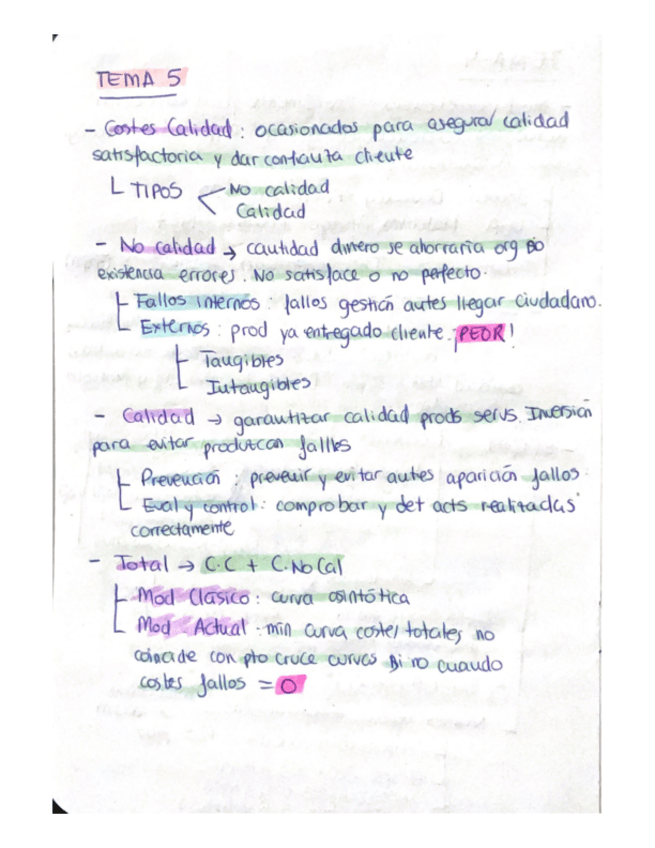 TEMA 5
- Costes Calidad : ocasionados para asegurar calidad
satisfactoria y dar confianza cliente
TIPOS No calidad
Calidad
- No calidad → cantidad dinero se ahorraria org no
existencia errores. No satisface o no perfecto.
Fallos internos : fallos gestión antes llegar ciudadano.
Externos : prod ya entregado cliente. PEOR!
Tangibles
Intangibles
- Calidad → garantizar calidad prods servs. Inversión
para evitar produzcan fallos
Prevención : prevenir y evitar antes aparición fallos.
Eval y control : comprobar y det acts realizadas
correctamente
- Total → C.C + C.No Cal
Mod Clásico : curva asintótica
Mod Actual : min curva costes totales no
coincide con pto cruce curvas si no cuando
costes fallos = 0